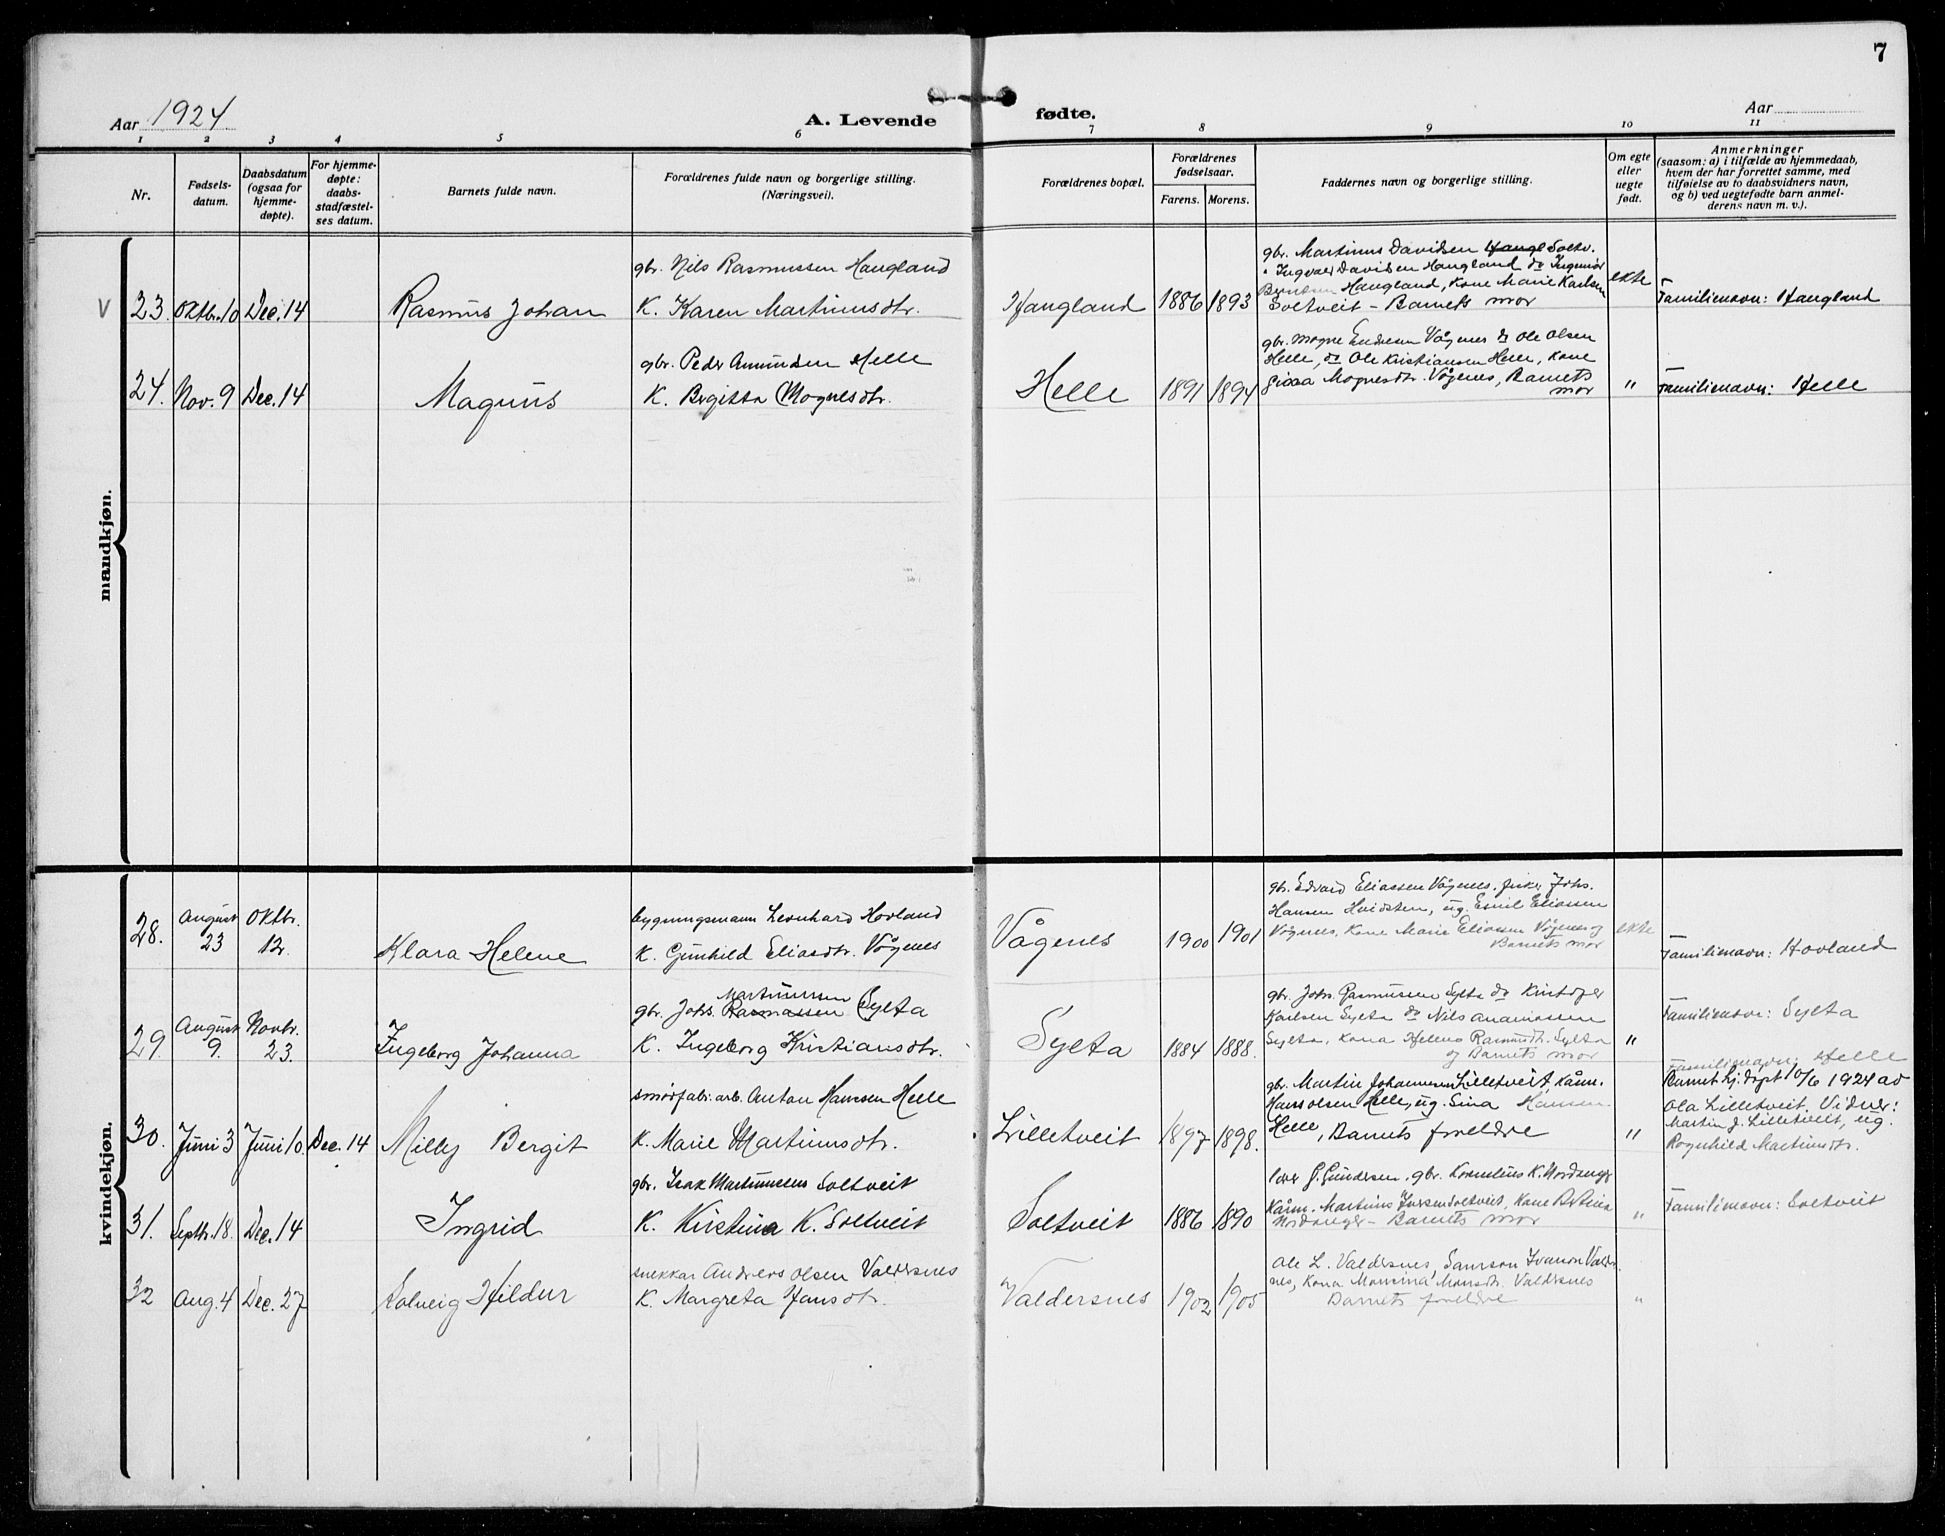 7
Aar 1924
A. Levende
fødte.
Aar
1 2 3 4 5 6 7 8 9 10 11
Nr.
Fødsels-
datum.
Daabsdatum
(ogsaa for
hjemme-
døpte).
For hjemme-
døpte:
daabs-
stadfæstel-
ses datum.
Barnets fulde navn.
Forældrenes fulde navn og borgerlige stilling.
(Næringsvei).
Forældrenes bopæl.
Forældrenes
fødselsaar.
Farens. Morens.
Faddernes navn og borgerlige stilling.
Om egte
eller
uegte
født.
Anmerkninger
(saasom: a) i tilfælde av hjemmedaab,
hvem der har forrettet samme, med
tilføielse av to daabsvidners navn,
og b) ved uegtefødte barn anmel-
derens navn m. v.).
mandkjøn.
V 23. Oktbr. 10 Dec. 14
Rasmus Johan
gbr. Nils Rasmussen Haugland
K. Karen Martinusdtr.
Haugland 1886 1893
gbr. Martinus Davidsen Haugl Soltv.
Ingvald Davidsen Haugland do Ingemar
Berntsen Haugland, Kone Marie Karlsen
Soltveit - Barnets mor
ekte
Familienavn: Haugland
24. Nov. 9 Dec. 14
Magnus
gbr. Peder Amundsen Helle
K. Bergitta Mognesdtr.
Helle 1891 1894
gbr. Mogne Endresen Vågenes do Ole Olsen
Helle, do Ole Kristiansen Helle, Kone
Mognesdtr. Vågenes, Barnets
mor
"
Familienavn: Helle
kvindekjøn.
28. August 23 Oktbr. 12.
Klara Helene
bygningsmann Leonhard Hovland
K. Gunhild Eliasdtr. Vågenes
Vågenes 1900 1901
gbr. Edvard Eliassen Vågenes, fisker Johs.
Hansen Hvidsten, ug. Emil Eliassen
Vågenes, Kone Marie Eliassen Vågenes og
Barnets mor
ekte
Familienavn: Hovland
29. August 9. Novbr. 23.
Ingeborg Johanna
Martinussen
gbr. Johs. Rasmussen Sylta
K. Ingeborg Kristiansdtr.
Sylta 1884 1888.
gbr. Johs. Rasmussen Sylta do Kristofer
Karlsen Sylta do Nils Ananiassen
Sylta, Kona Helena Rasmusdtr. Sylta
og Barnets mor
"
Familienavn: Sylta
30. Juni 3 Juni 10. Dec. 14
Milly Bergit
smørfabr. arb. Anton Hansen Helle
K. Marie Martinusdtr.
Lilletveit 1897 1898.
gbr. Martin Johannesen Lilletveit, Kånn.
Hans Olsen Helle, ug. Sina Hansen
Helle, Barnets foreldre
"
Familienavn: Helle
Barnet hj. døpt 10/6 1924 av
Ola Lilletveit. Vidner:
Martin J. Lilletveit, ug.
Rognhild Martinusdtr.
31. Septbr. 18. Dec. 14
Ingrid
gbr. Isak Martinussen Soltveit
K. Kirstina K. Soltveit
Soltveit 1886 1890
G. Gundersen. gbr. Kornelius K. Nordanger
Kånn. Martinus Iversen Soltveit, Kone Bertina
Nordanger - Barnets mor
"
Familienavn: Soltveit
32 Aug. 4 Dec. 27
Solveig Hildur
snekkar Andreas Olsen Valdersnes
K. Margreta Jansdtr.
Valdersnes 1902 1905
Ole L. Valdersnes, Samson Ivanson Valders-
nes, Kona Monsina Monsdtr. Valdersnes
Barnets foreldre
"